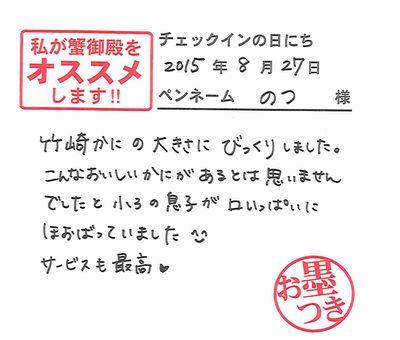 私が蟹御殿を
オススメ
します!!
チェックインの日にち
2015年8月27日
ペンネーム のつ 様
竹崎かにの大きさにびっくりしました。
こんなおいしいかにがあるとは思いません
でしたと小3の息子が口いっぱいに
ほおばっていました
サービスも最高♥
お墨
つき